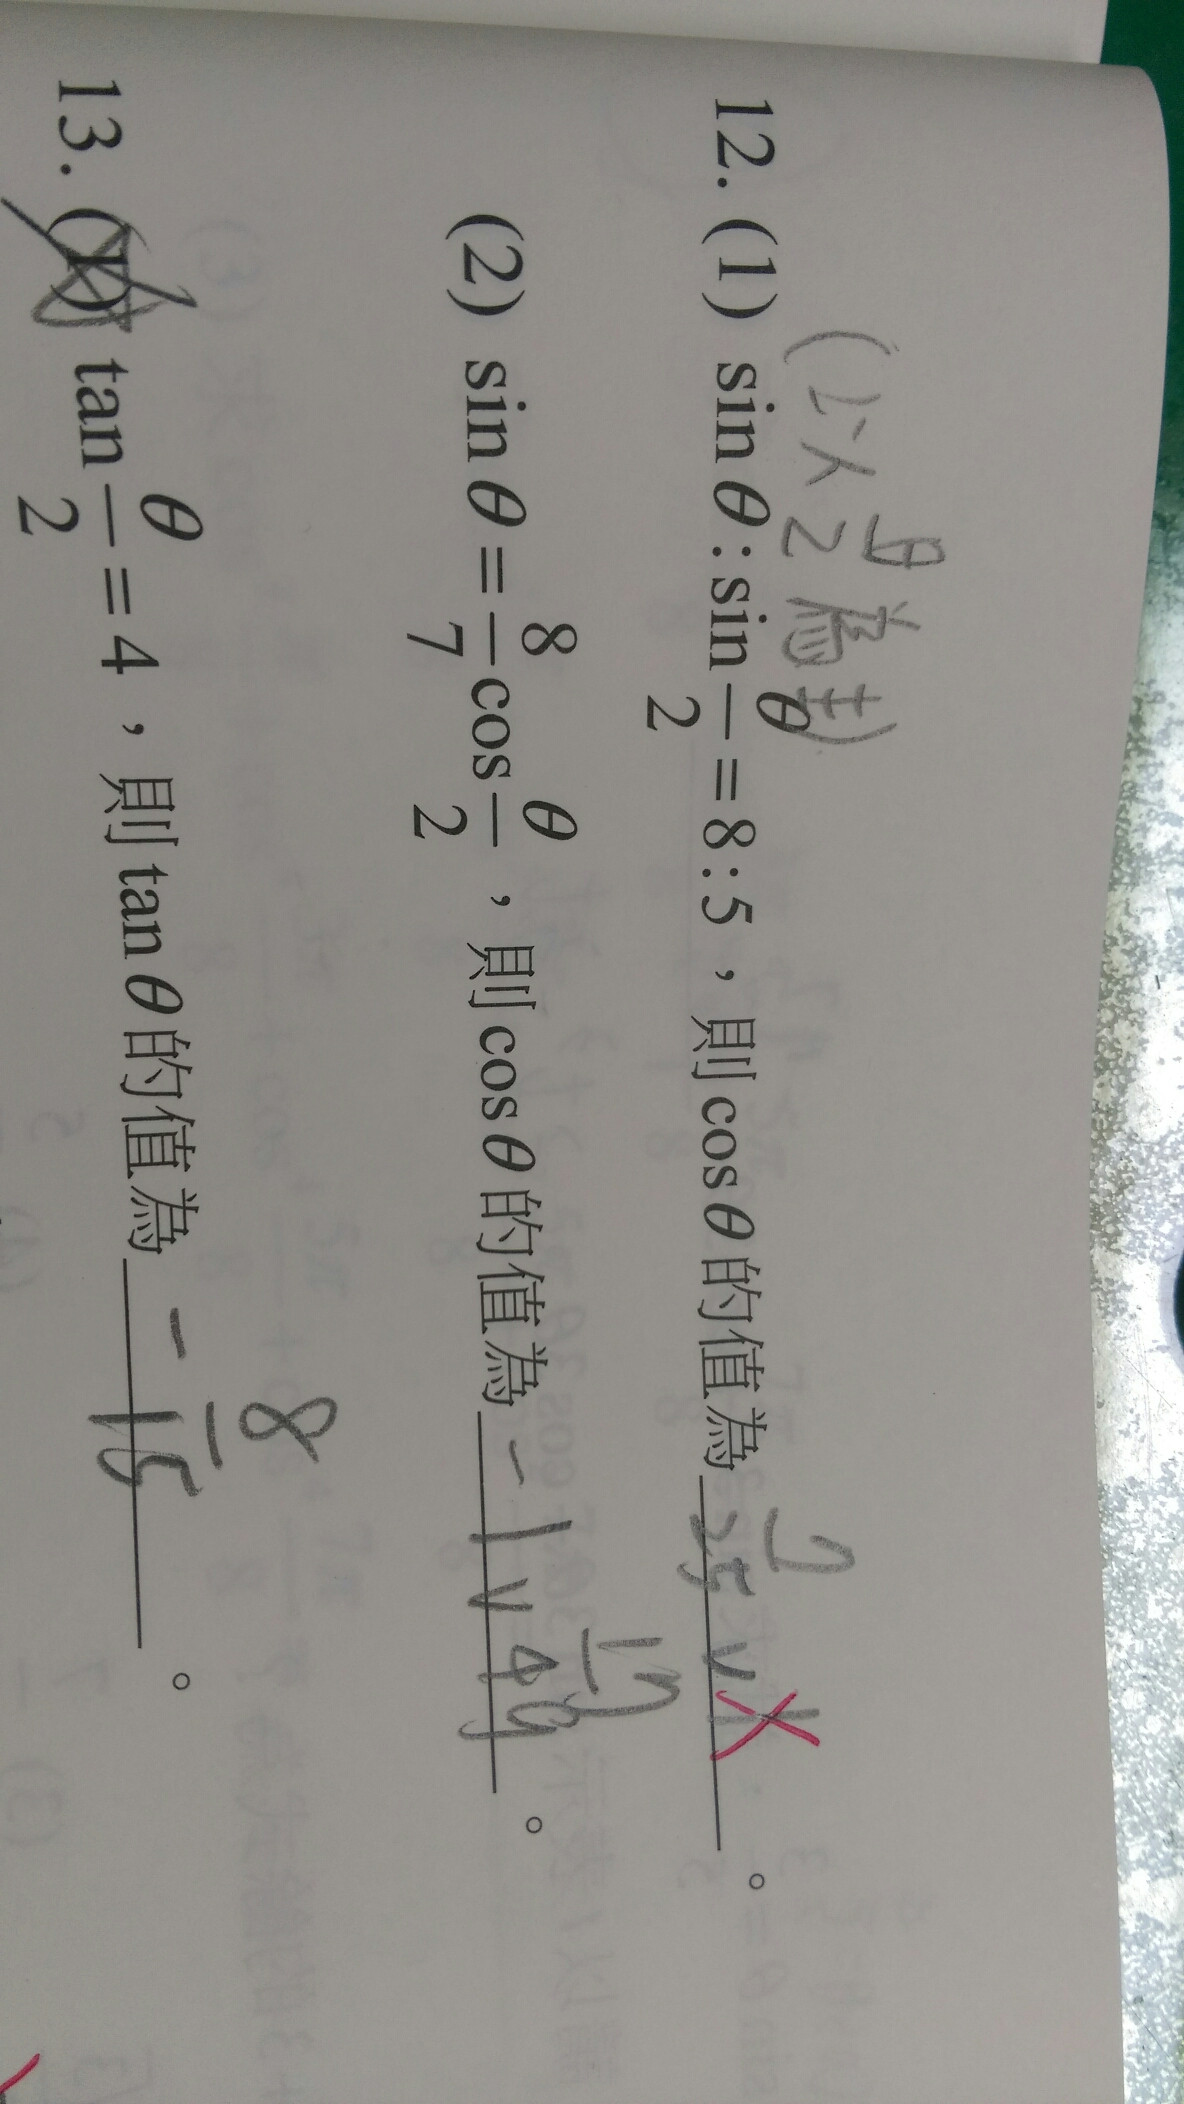 (以θ/2為主)
12. (1) sinθ:sin θ/2 = 8:5，則cosθ的值為 7/25 ∨ 1 。
(2) sinθ = 8/7 cos θ/2，則cosθ的值為 -1 ∨ 17/49 。
13. (1) tan θ/2 = 4，則tanθ的值為 -8/15 。